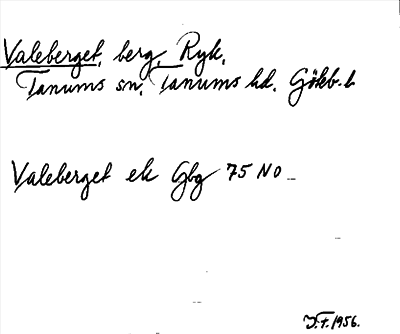 Valeberget, berg, Ryk,
Tanums sn, Tanums hd. Göteb. l.
Valeberget ek Gbg 75 NO
J.F. 1956.